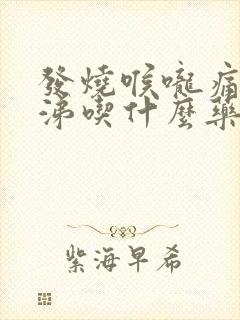 發燒喉嚨痛
涕喫什麼藥
紫海早希